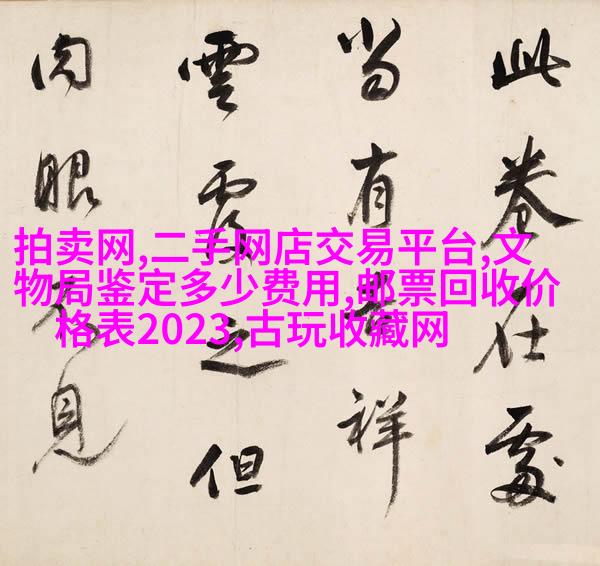 此卷在處
當有吉祥
雲覆之但
肉眼不見
拍卖网,二手网店交易平台,文
物局鉴定多少费用,邮票回收价
格表2023,古玩收藏网